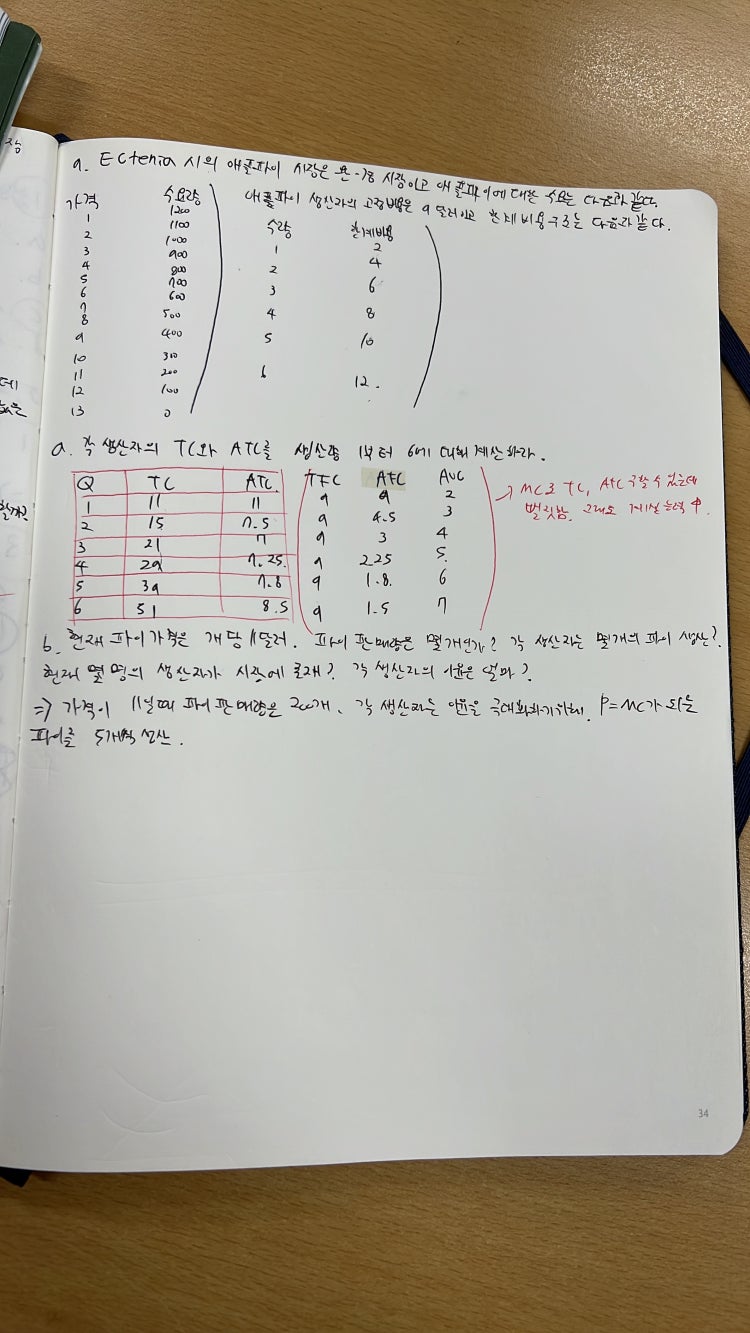 9. Ectenia 시의 애플파이 시장은 완-경 시장이고 애플파이에 대한 수요는 다음과 같다.
가격 수요량 애플파이 생산자의 고정비용은 9달러이고 한계비용구조는 다음과 같다.
1 1200 수량 한계비용
2 1100 1 2
3 1000 2 4
4 900 3 6
5 800 4 8
6 700 5 10
7 600 6 12.
8 500
9 400
10 300
11 200
12 100
13 0
a. 각 생산자의 TC와 ATC를 생산량 1부터 6에 대해 계산하라.
Q TC ATC TFC AFC AVC
1 11 11 9 9 2
2 15 7.5 9 4.5 3
3 21 7 9 3 4
4 29 7.25 9 2.25 5
5 39 7.8 9 1.8 6
6 51 8.5 9 1.5 7
→ MC로 TC, ATC 구할 수 있는데
b. 현재 파이가격은 개당 11달러. 파이 판매량은 몇개인가? 각 생산자는 몇개의 파이 생산?
현재 몇 명의 생산자가 시장에 존재? 각 생산자의 이윤은 얼마?
⇒ 가격이 11일때 파이판매량은 200개. 각 생산자는 이윤을 극대화하기위해. P=MC가 되는
파이를 5개씩 생산.
34